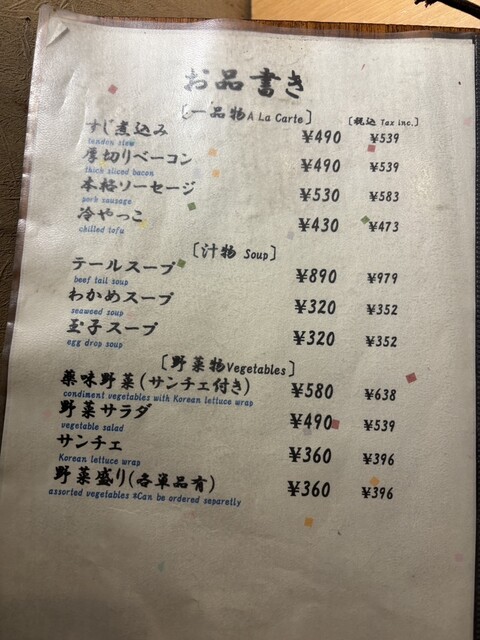 お品書き
[一品物A La Carte] [税込 Tax inc.]
すじ煮込み ¥490 ¥539
tendon stew
厚切りベーコン ¥490 ¥539
thick sliced bacon
本格ソーセージ ¥530 ¥583
pork sausage
冷やっこ ¥430 ¥473
chilled tofu
[汁物 Soup]
テールスープ ¥890 ¥979
beef tail soup
わかめスープ ¥320 ¥352
seaweed soup
玉子スープ ¥320 ¥352
egg drop soup
[野菜物Vegetables]
薬味野菜(サンチェ付き) ¥580 ¥638
condiment vegetables with Korean lettuce wrap
野菜サラダ ¥490 ¥539
vegetable salad
サンチェ ¥360 ¥396
Korean lettuce wrap
野菜盛り(各単品有) ¥360 ¥396
assorted vegetables ※Can be ordered separetly